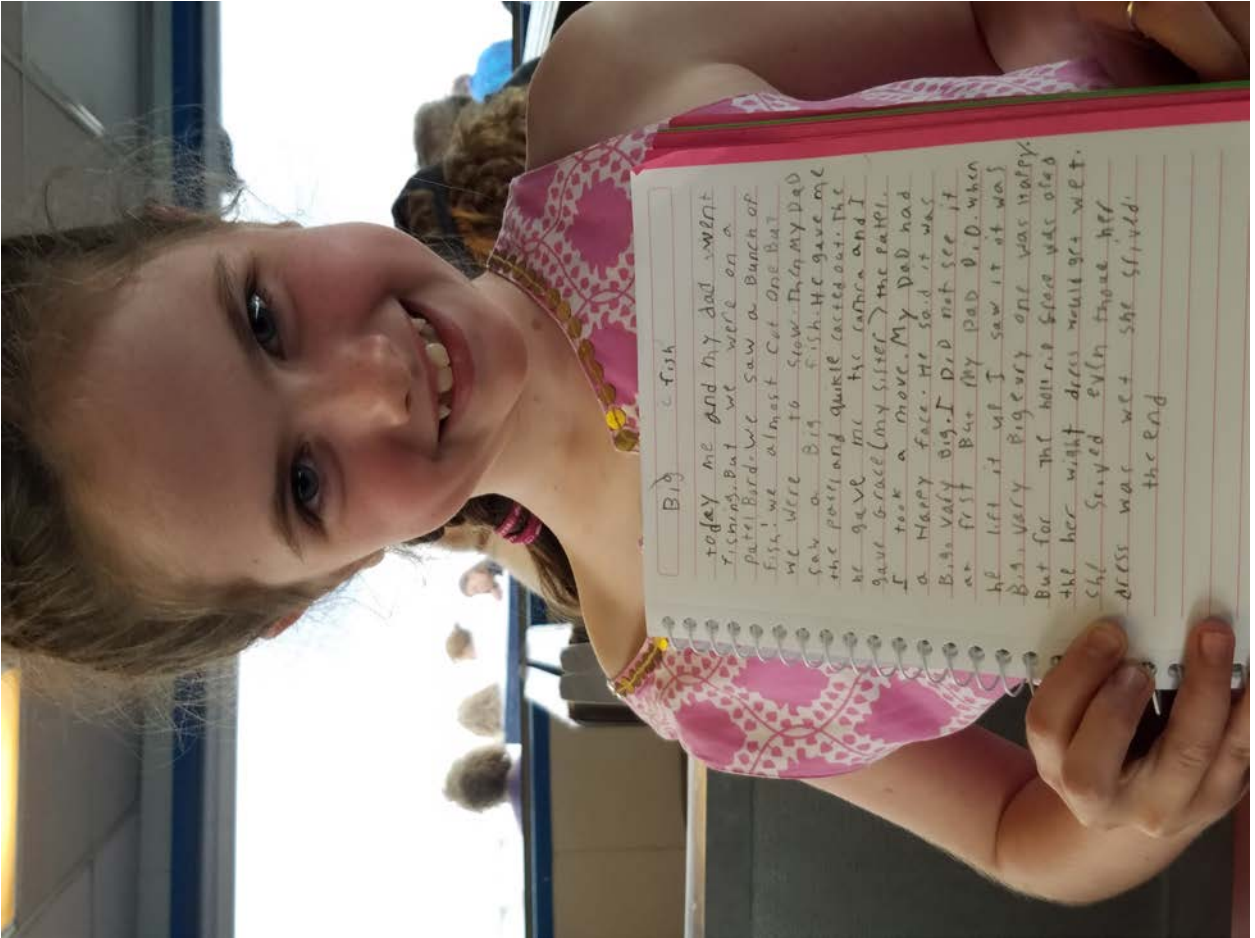 Big fish
today me and my dad went
fishing. But we were on a
patel Bord. we saw a Bunch of
fish! we almost cot one But
we were to slow. then My DaD
saw a Big fish. He gave me
the patel and quikle casted out. The
he gave me the camra and I
gave grace (my sister) the patel.
I took a move. My DaD had
a Happy face. He said it was
Big. vary Big. I DiD not see it
at frist But my DaD DiD. when
he lift it up I saw it it was
Big. vary Big evry one was Happy.
But for The
the her wight dres would get wet.
she Srived even thoue her
dress was wet she srived.
the end